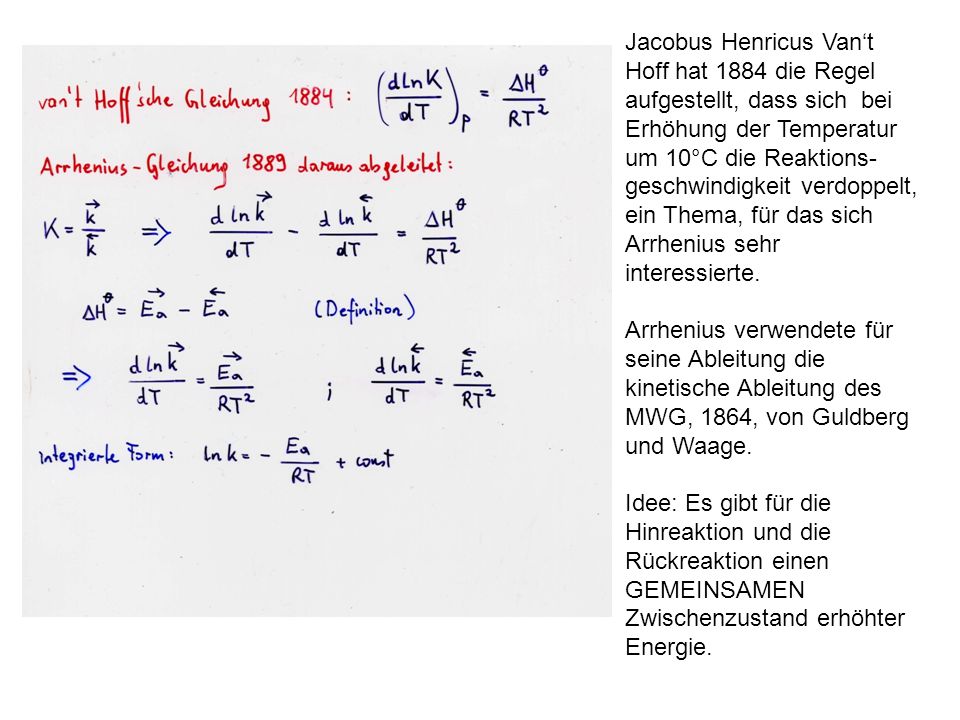 van't Hoff'sche Gleichung 1884 : (d ln K / dT)p = ΔH⊖ / RT²
Arrhenius-Gleichung 1889 daraus abgeleitet:
K = k→ / k← ⇒ d ln k→ / dT - d ln k← / dT = ΔH⊖ / RT²
ΔH⊖ = Ea→ - Ea← (Definition)
⇒ d ln k→ / dT = Ea→ / RT² ; d ln k← / dT = Ea← / RT²
integrierte Form: ln k = - Ea / RT + const
Jacobus Henricus Van‘t
Hoff hat 1884 die Regel
aufgestellt, dass sich bei
Erhöhung der Temperatur
um 10°C die Reaktions-
geschwindigkeit verdoppelt,
ein Thema, für das sich
Arrhenius sehr
interessierte.
Arrhenius verwendete für
seine Ableitung die
kinetische Ableitung des
MWG, 1864, von Guldberg
und Waage.
Idee: Es gibt für die
Hinreaktion und die
Rückreaktion einen
GEMEINSAMEN
Zwischenzustand erhöhter
Energie.